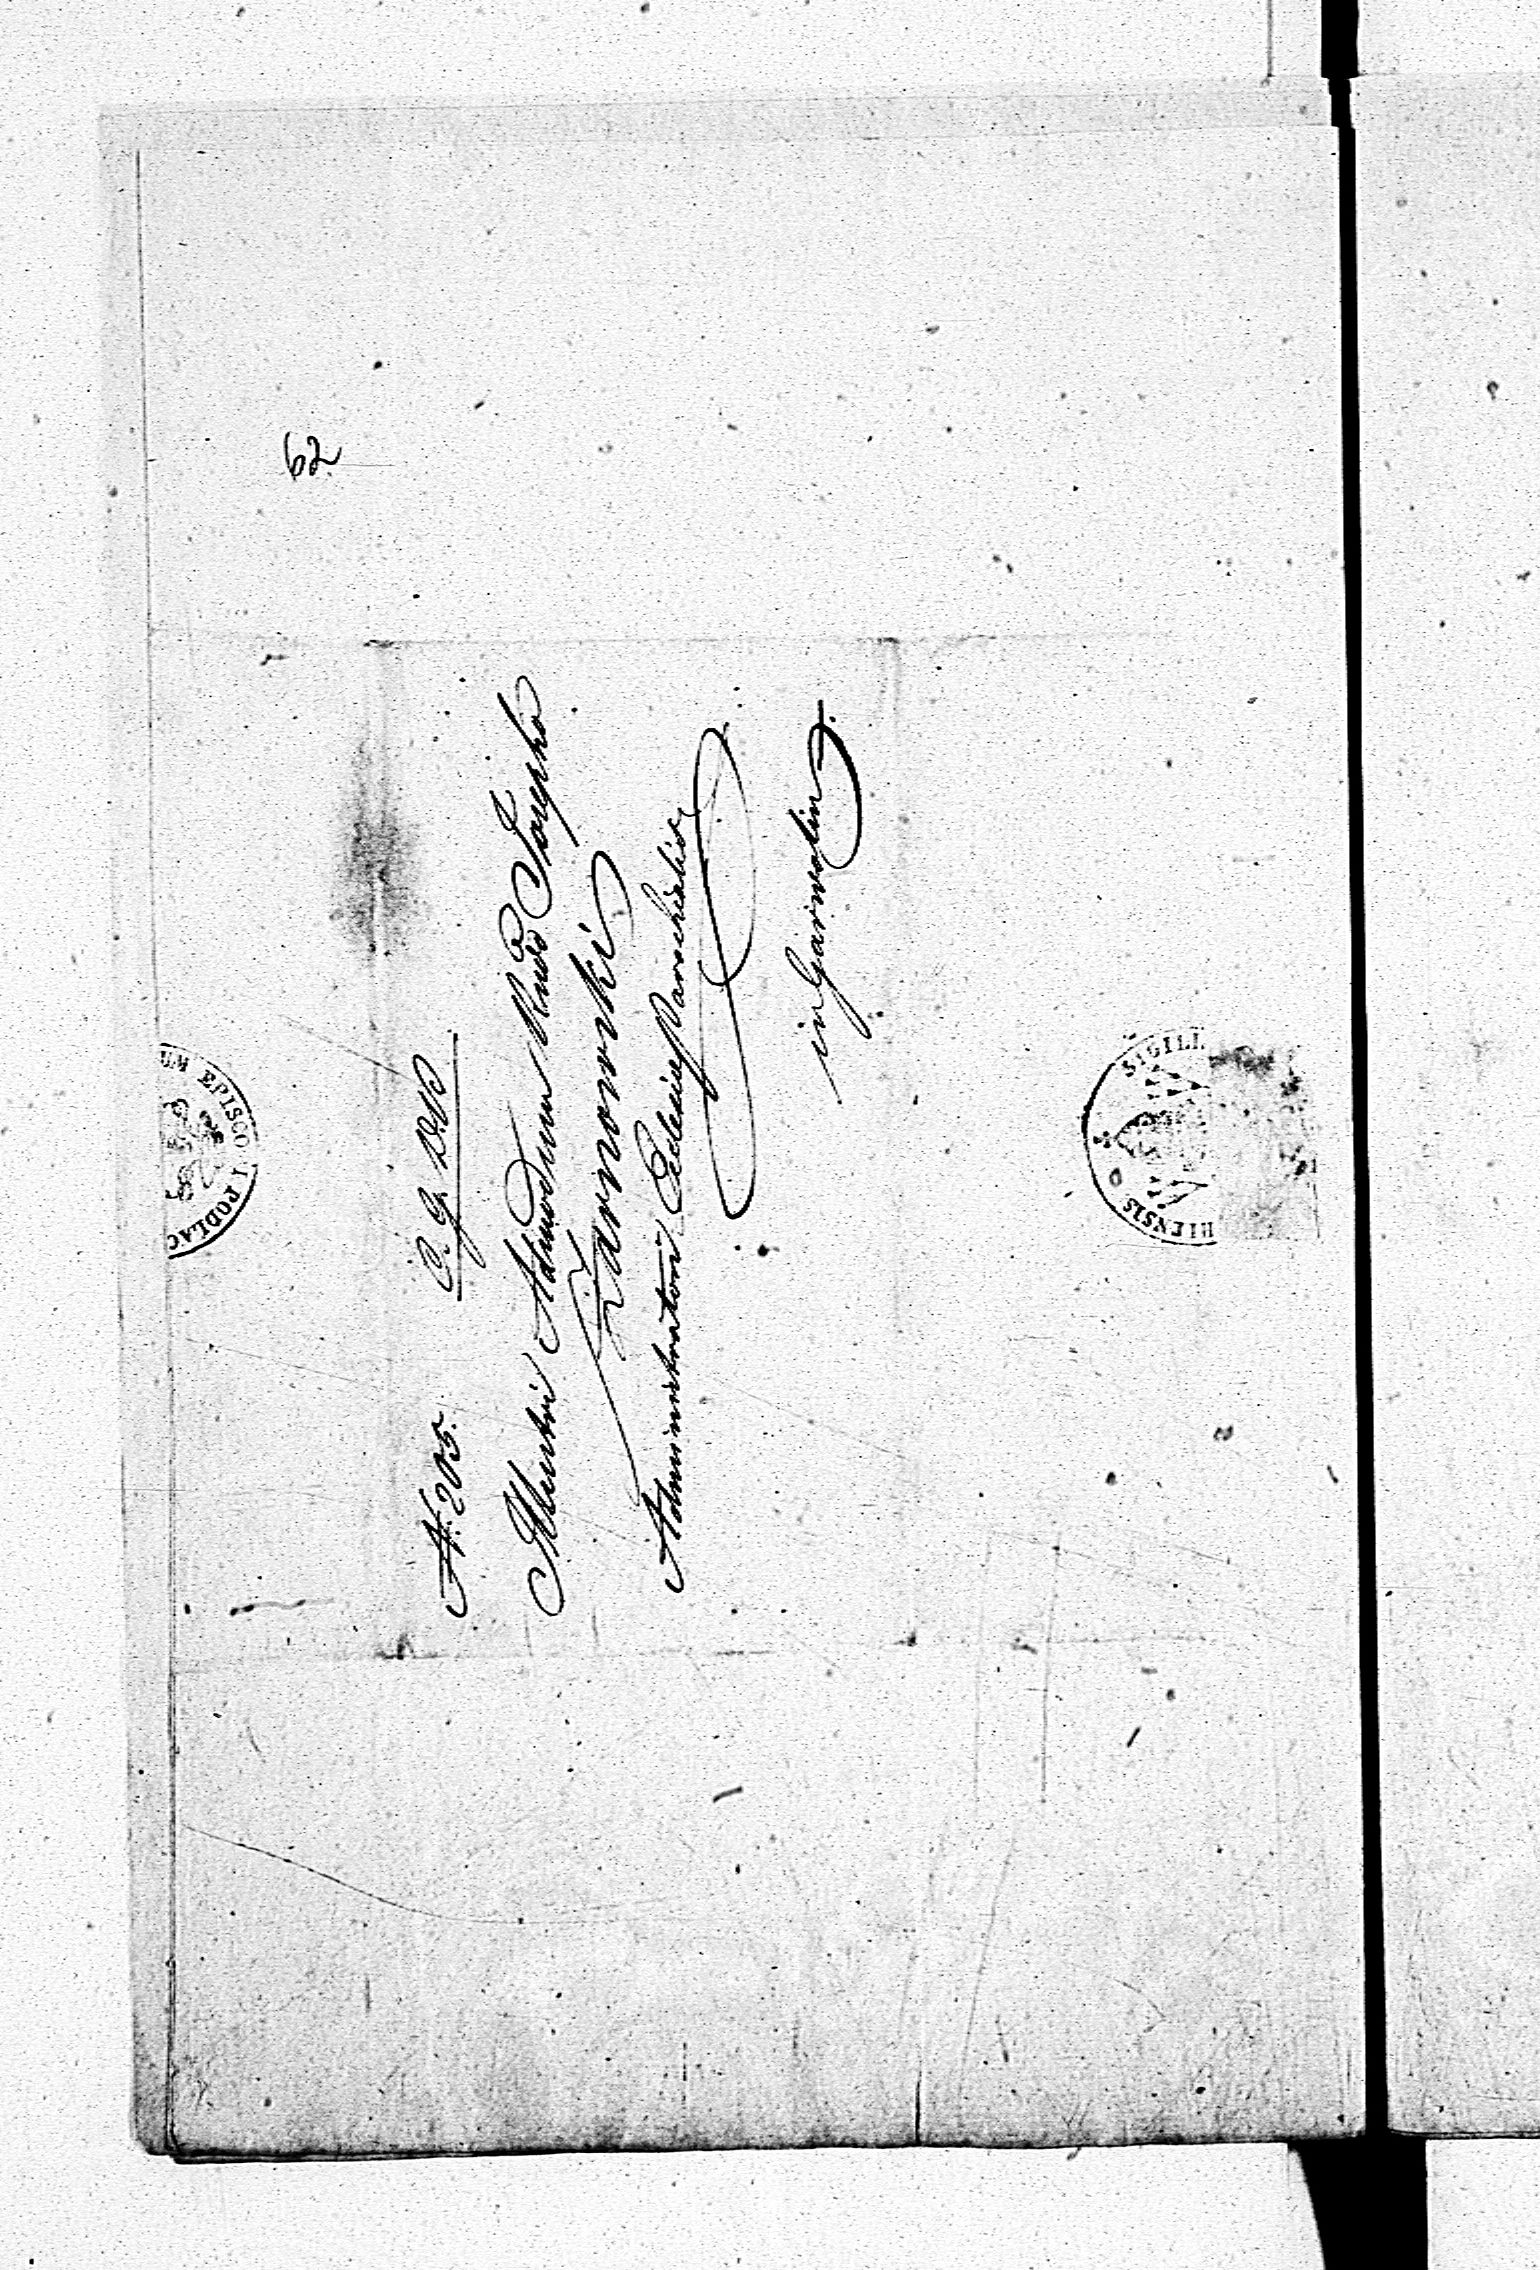 62
N. 205. C. G. D. P.
Illustri Admodum Rndo Josepho
Karnowski
Administratori Eclesiæ Parochialis
in Garwolin.
UM EPISCO
I PODLAC
SIGILL
HIENSIS